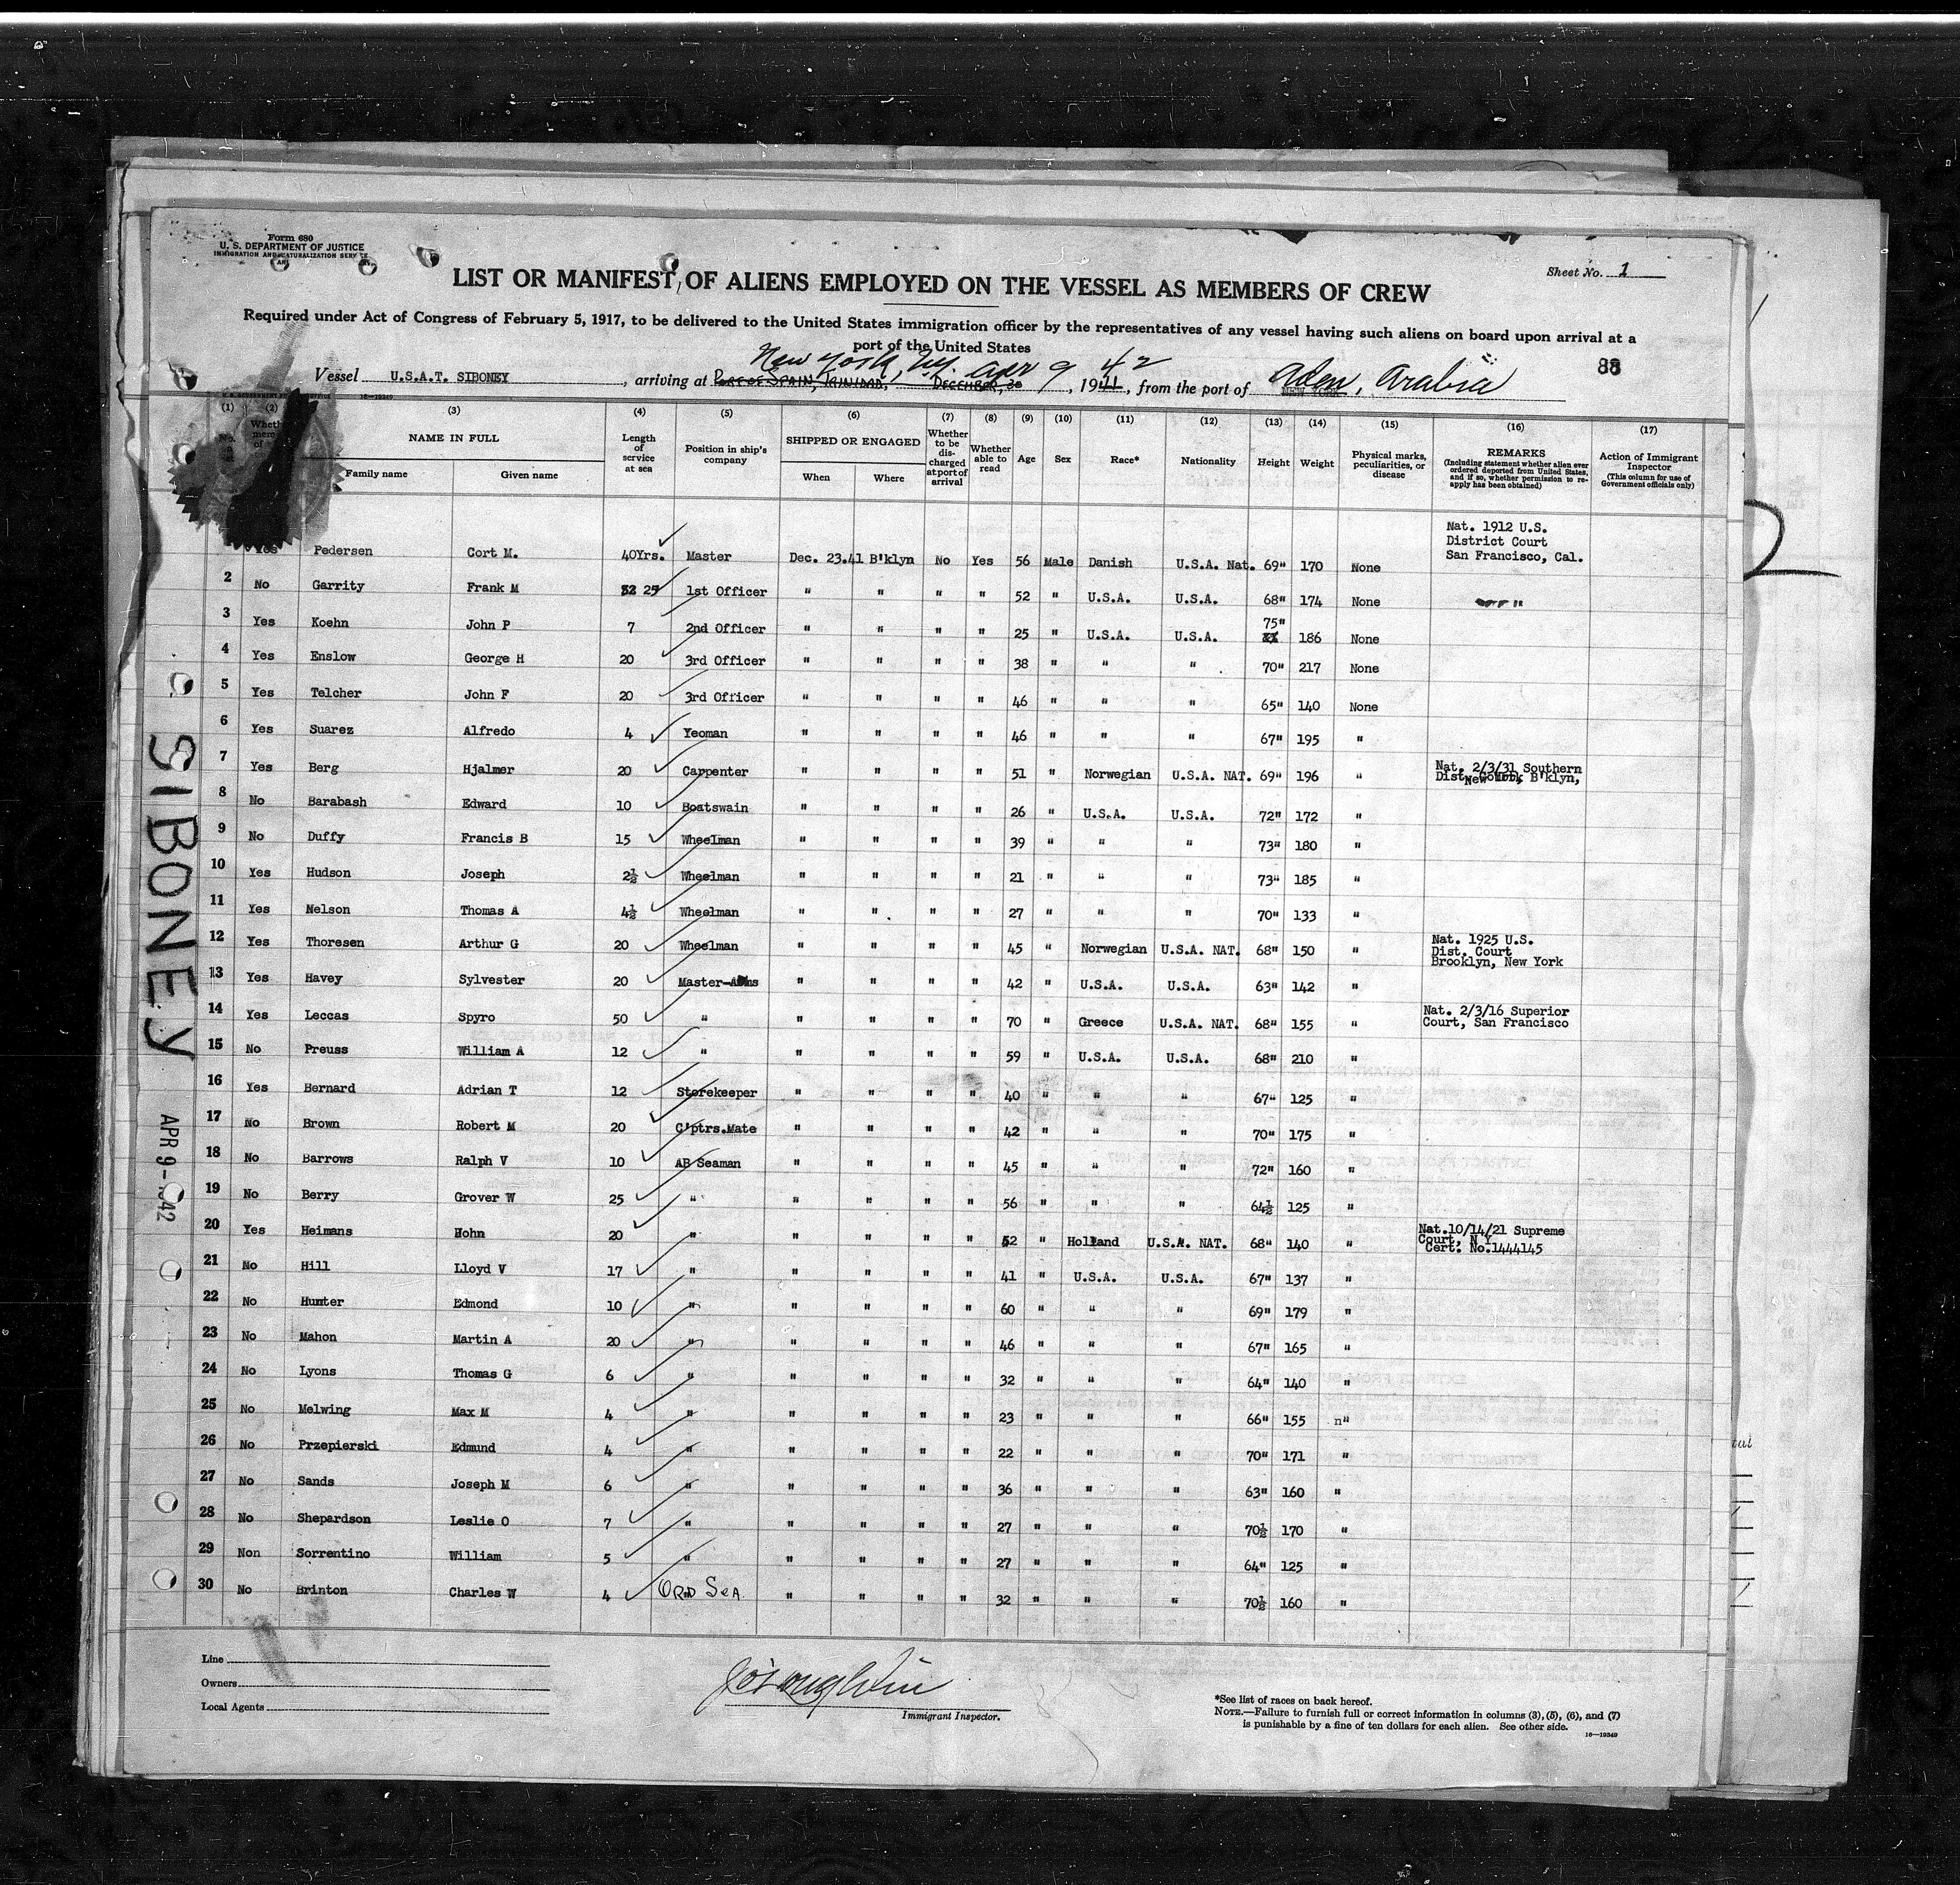 Form 680
U. S. DEPARTMENT OF JUSTICE
IMMIGRATION AND NATURALIZATION SERVICE
Sheet No. 1
LIST OR MANIFEST OF ALIENS EMPLOYED ON THE VESSEL AS MEMBERS OF CREW
Required under Act of Congress of February 5, 1917, to be delivered to the United States immigration officer by the representatives of any vessel having such aliens on board upon arrival at a
port of the United States
88
New York, N.Y. Apr 9 42
Vessel U.S.A.T. SIBONEY, arriving at PORT OF SPAIN, TRINIDAD, DECEMBER, 30, 1941, from the port of NEW YORK Aden, Arabia
(1) (2) (3) (4) (5) (6) (7) (8) (9) (10) (11) (12) (13) (14) (15) (16) (17)
NAME IN FULL
Family name Given name
Length of service at sea
Position in ship's company
SHIPPED OR ENGAGED
When Where
Whether to be discharged at port of arrival
Whether able to read
Age Sex Race* Nationality Height Weight
Physical marks, peculiarities, or disease
REMARKS
(Including statement whether alien ever ordered deported from United States, and if so, whether permission to reapply has been obtained)
Action of Immigrant Inspector
(This column for use of Government officials only)
Yes Pedersen Cort M. 40Yrs. Master Dec. 23.41 B'klyn No Yes 56 Male Danish U.S.A. Nat. 69" 170 None Nat. 1912 U.S. District Court San Francisco, Cal.
2 No Garrity Frank M 25 1st Officer " " " " 52 " U.S.A. U.S.A. 68" 174 None
3 Yes Koehn John P 7 2nd Officer " " " " 25 " U.S.A. U.S.A. 75" 186 None
4 Yes Enslow George H 20 3rd Officer " " " " 38 " " " 70" 217 None
5 Yes Telcher John F 20 3rd Officer " " " " 46 " " " 65" 140 None
6 Yes Suarez Alfredo 4 Yeoman " " " " 46 " " " 67" 195 "
7 Yes Berg Hjalmer 20 Carpenter " " " " 51 " Norwegian U.S.A. NAT. 69" 196 " Nat. 2/3/31 Southern Dist. Court B'klyn, New York
8 No Barabash Edward 10 Boatswain " " " " 26 " U.S.A. U.S.A. 72" 172 "
9 No Duffy Francis B 15 Wheelman " " " " 39 " " " 73" 180 "
10 Yes Hudson Joseph 2½ Wheelman " " " " 21 " " " 73" 185 "
11 Yes Nelson Thomas A 4½ Wheelman " " " " 27 " " " 70" 133 "
12 Yes Thoresen Arthur G 20 Wheelman " " " " 45 " Norwegian U.S.A. NAT. 68" 150 " Nat. 1925 U.S. Dist. Court Brooklyn, New York
13 Yes Havey Sylvester 20 Master-Arms " " " " 42 " U.S.A. U.S.A. 63" 142 "
14 Yes Leccas Spyro 50 " " " " " 70 " Greece U.S.A. NAT. 68" 155 " Nat. 2/3/16 Superior Court, San Francisco
15 No Preuss William A 12 " " " " " 59 " U.S.A. U.S.A. 68" 210 "
16 Yes Bernard Adrian T 12 Storekeeper " " " " 40 " " " 67" 125 "
17 No Brown Robert M 20 C'ptrs.Mate " " " " 42 " " " 70" 175 "
18 No Barrows Ralph V 10 AB Seaman " " " " 45 " " " 72" 160 "
19 No Berry Grover W 25 " " " " " 56 " " " 64½ 125 "
20 Yes Heimans Hohn 20 " " " " " 52 " Holland U.S.A. NAT. 68" 140 " Nat.10/14/21 Supreme Court, N Y Cert. No.1444145
21 No Hill Lloyd V 17 " " " " " 41 " U.S.A. U.S.A. 67" 137 "
22 No Hunter Edmond 10 " " " " " 60 " " " 69" 179 "
23 No Mahon Martin A 20 " " " " " 46 " " " 67" 165 "
24 No Lyons Thomas G 6 " " " " " 32 " " " 64" 140 "
25 No Melwing Max M 4 " " " " " 23 " " " 66" 155 n"
26 No Przepierski Edmund 4 " " " " " 22 " " " 70" 171 "
27 No Sands Joseph M 6 " " " " " 36 " " " 63" 160 "
28 No Shepardson Leslie O 7 " " " " " 27 " " " 70½ 170 "
29 Non Sorrentino William 5 " " " " " 27 " " " 64" 125 "
30 No Brinton Charles W 4 ORD SEA " " " " 32 " " " 70½ 160 "
SIBONEY
APR 9-1942
2
Line
Owners
Local Agents
Immigrant Inspector.
*See list of races on back hereof.
NOTE.—Failure to furnish full or correct information in columns (3), (5), (6), and (7)
is punishable by a fine of ten dollars for each alien. See other side.
16—19349